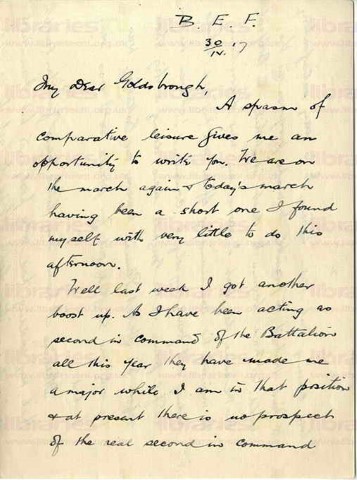 B. E. F.
30/IV. 17
My Dear Goldsbrough,
A spasm of
comparative leisure gives me an
opportunity to write you. We are on
the march again & today's march
having been a short one I found
myself with very little to do this
afternoon.
Well last week I got another
boost up. As I have been acting as
second in command of the Battalion
all this year they have made me
a major while I am in that position
& at present there is no prospect
of the real second in command